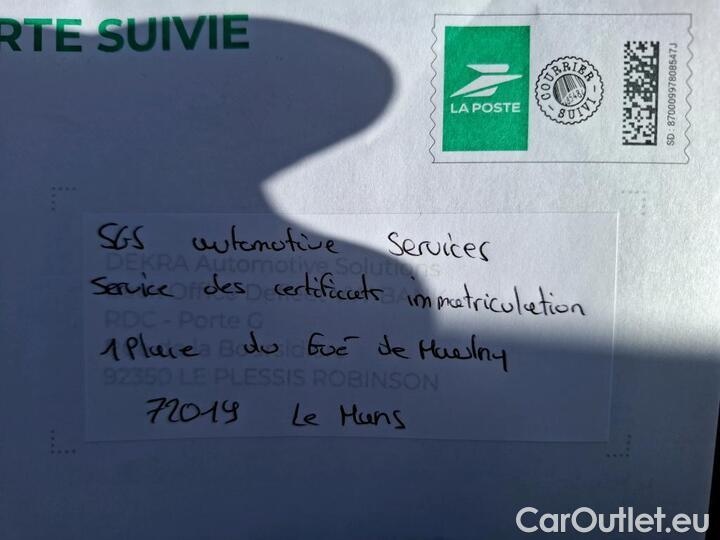 RTE SUIVIE
LA POSTE
COURRIER SUIVI
SD : 87000997808547J
SGS automotive Services
DEKRA Automotive Solutions
Service des certificats immatriculation
RDC - Porte G
1 Place du Gué de Maulny
92350 LE PLESSIS ROBINSON
72019 Le Mans
CarOutlet.eu